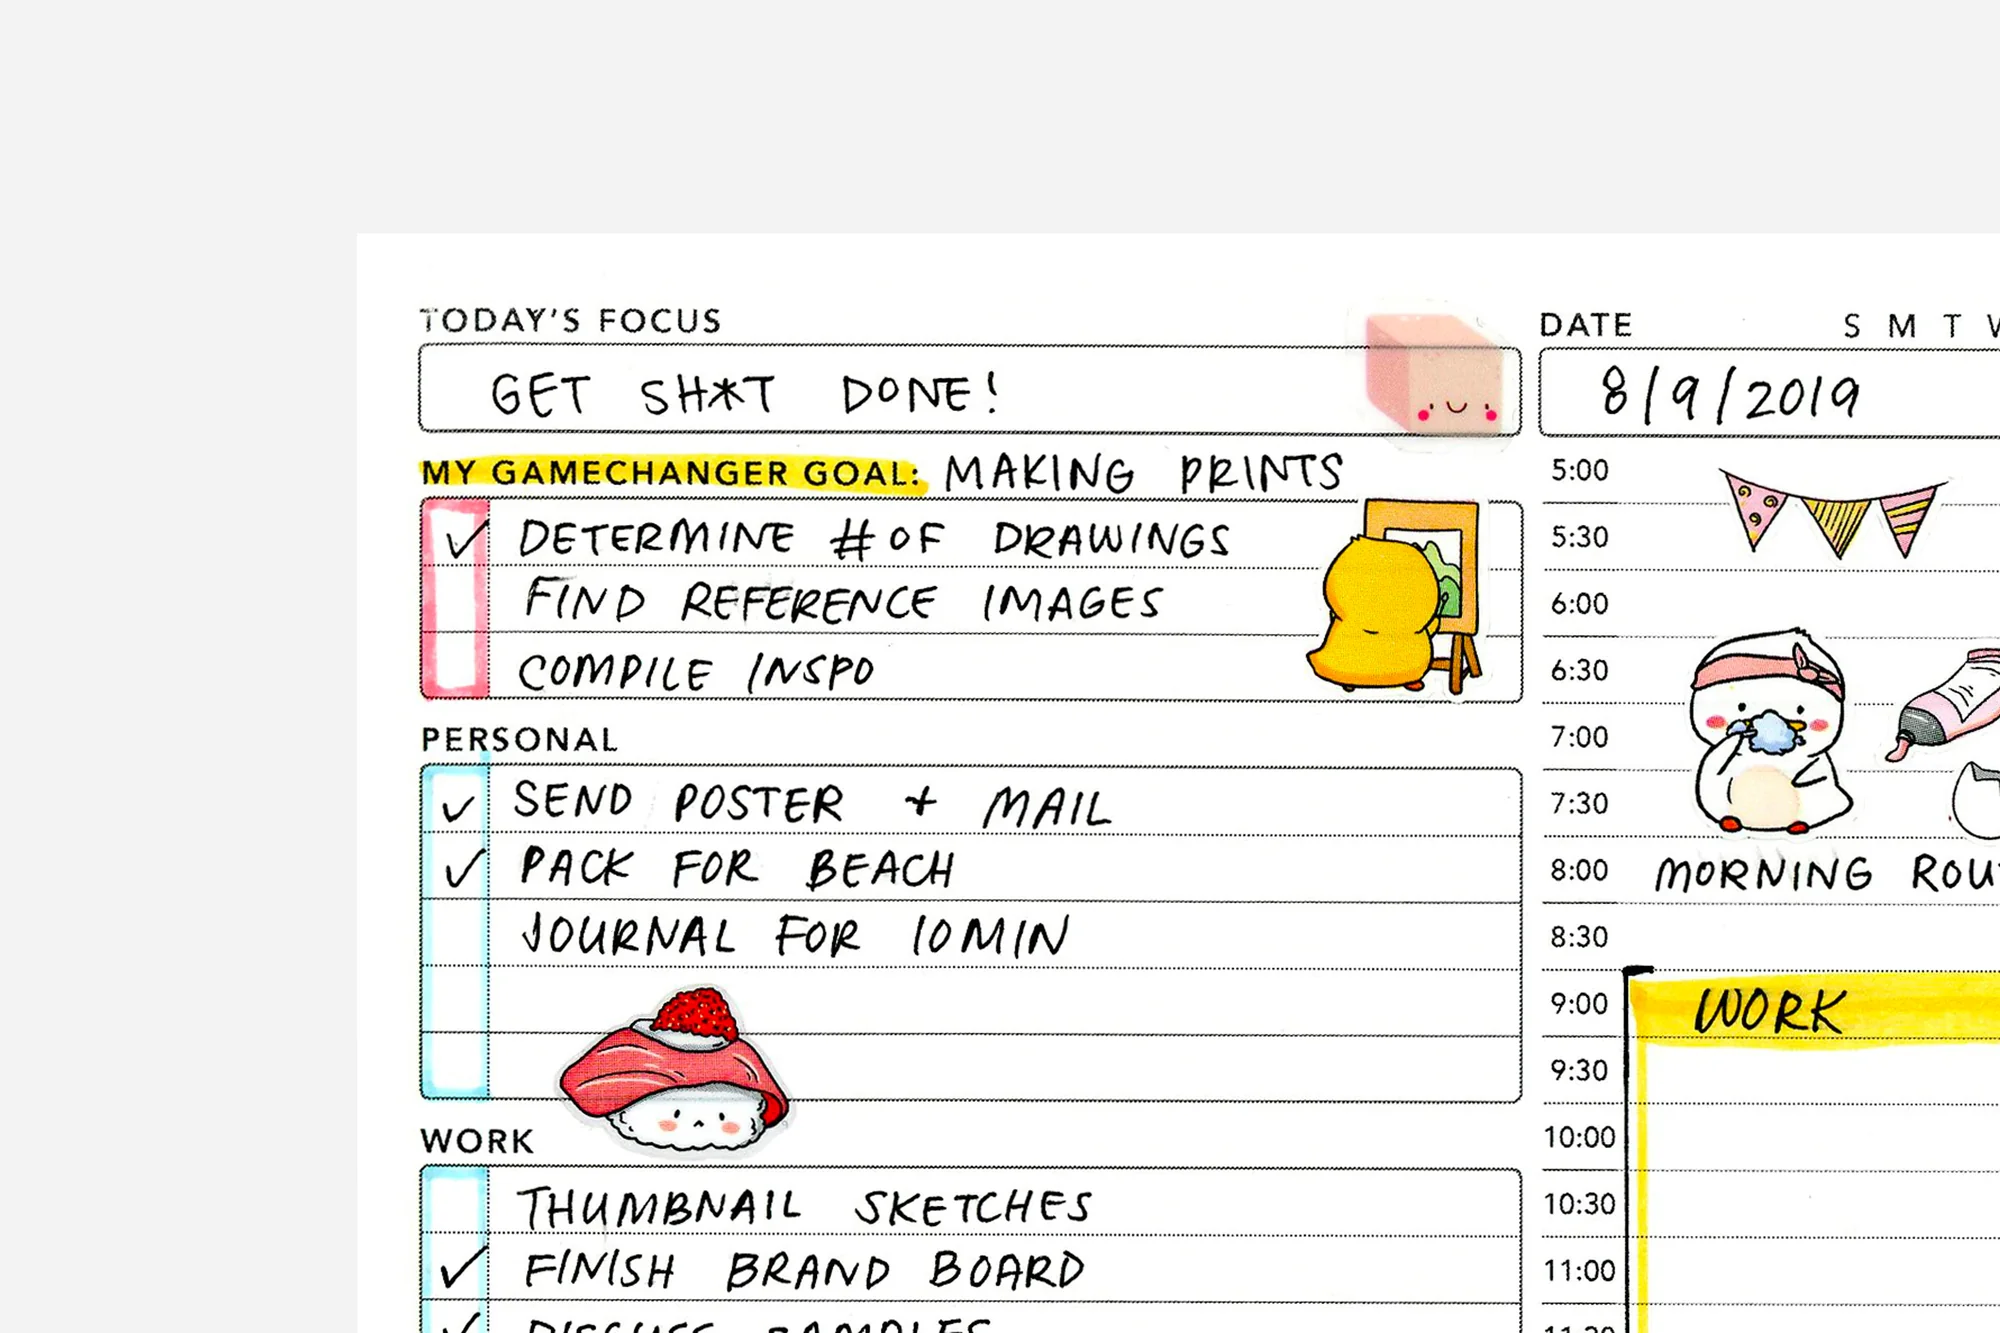 TODAY'S FOCUS
GET SH*T DONE!
MY GAMECHANGER GOAL: MAKING PRINTS
DETERMINE # OF DRAWINGS
FIND REFERENCE IMAGES
COMPILE INSPO
PERSONAL
SEND POSTER + MAIL
PACK FOR BEACH
JOURNAL FOR 10 MIN
WORK
THUMBNAIL SKETCHES
FINISH BRAND BOARD
DISCUSS SAMPLES
DATE S M T
8/9/2019
5:00
5:30
6:00
6:30
7:00
7:30
8:00 MORNING
8:30
9:00 WORK
9:30
10:00
10:30
11:00
11:30